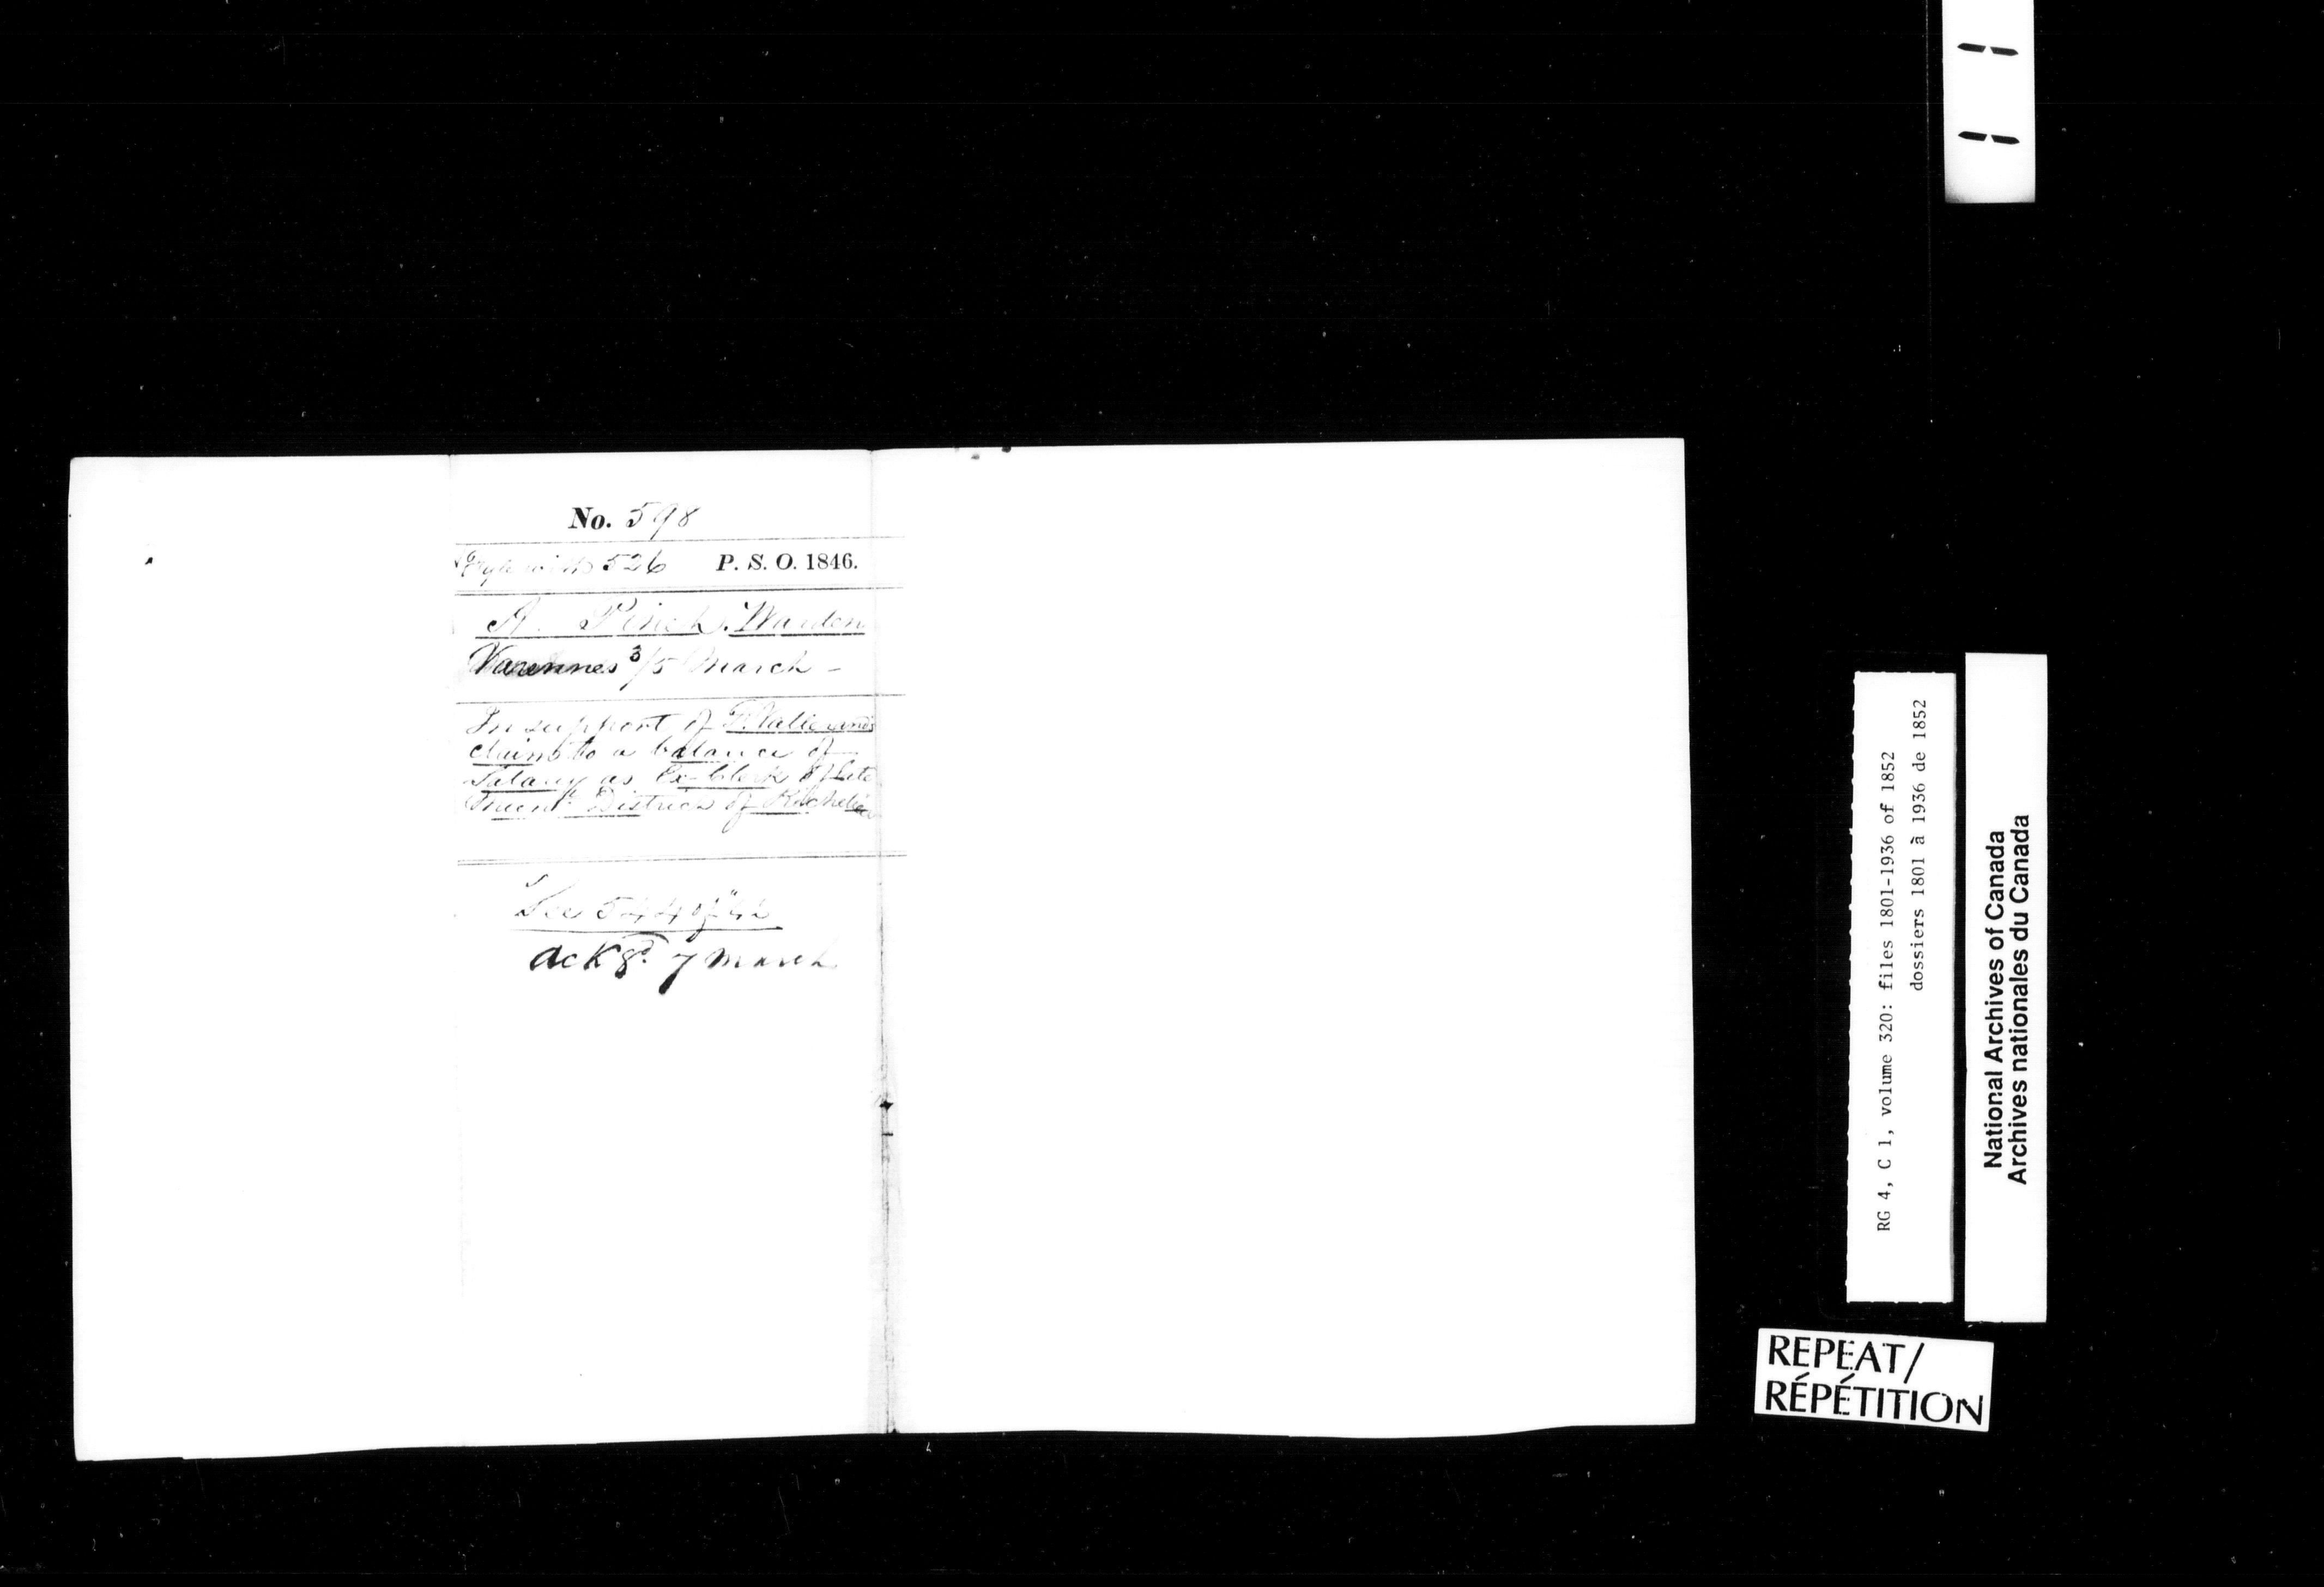 No. 598
with 526 P. S. O. 1846.
A. Pinet. Warden
Varennes 3/5 March -
In support of F. Vallerand's
claim to a balance of
Salary as Ex-Clerk of late
Munl. District of Richelieu
See 5449/42
Ackgd. 7 March
RG 4, C 1, volume 320: files 1801-1936 of 1852
dossiers 1801 à 1936 de 1852
National Archives of Canada
Archives nationales du Canada
REPEAT/
RÉPÉTITION